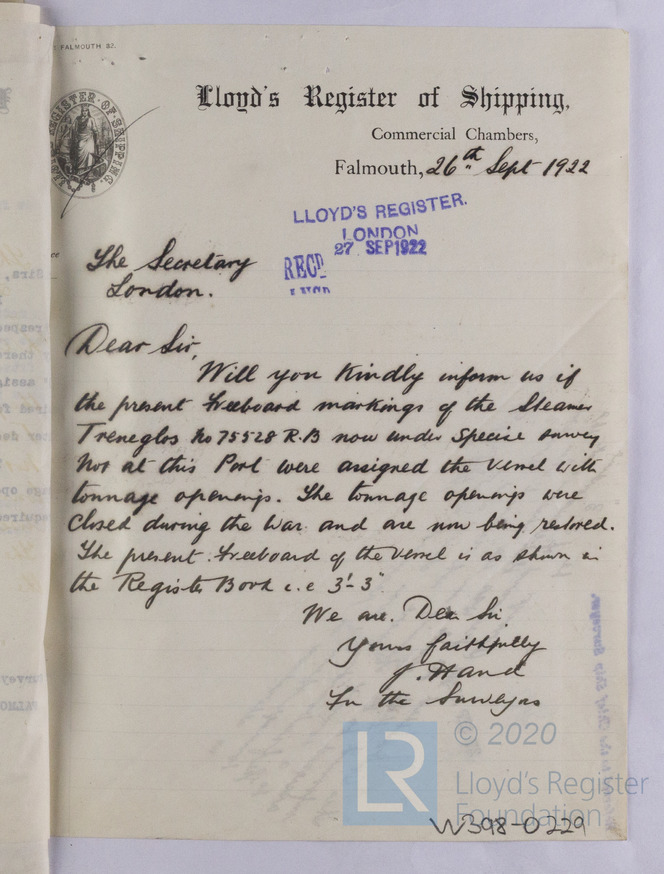 FALMOUTH 37.
LLOYD'S REGISTER OF SHIPPING
Lloyd's Register of Shipping,
Commercial Chambers,
Falmouth, 26th Sept 1922
LLOYD'S REGISTER.
LONDON
27 SEP 1922
RECD
The Secretary
London.
Dear Sir,
Will you kindly inform us if
the present Freeboard markings of the Steamer
Treneglos No 75528 R.B now under Special survey
No1 at this Port were assigned the Vessel with
tonnage openings. The tonnage openings were
closed during the War and are now being restored.
The present Freeboard of the Vessel is as shown in
the Register Book i.e 3'-3"
We are. Dear Sir.
Yours faithfully
J. Hand
For the Surveyors
LR
© 2020
Lloyd's Register
Foundation
W398-0229